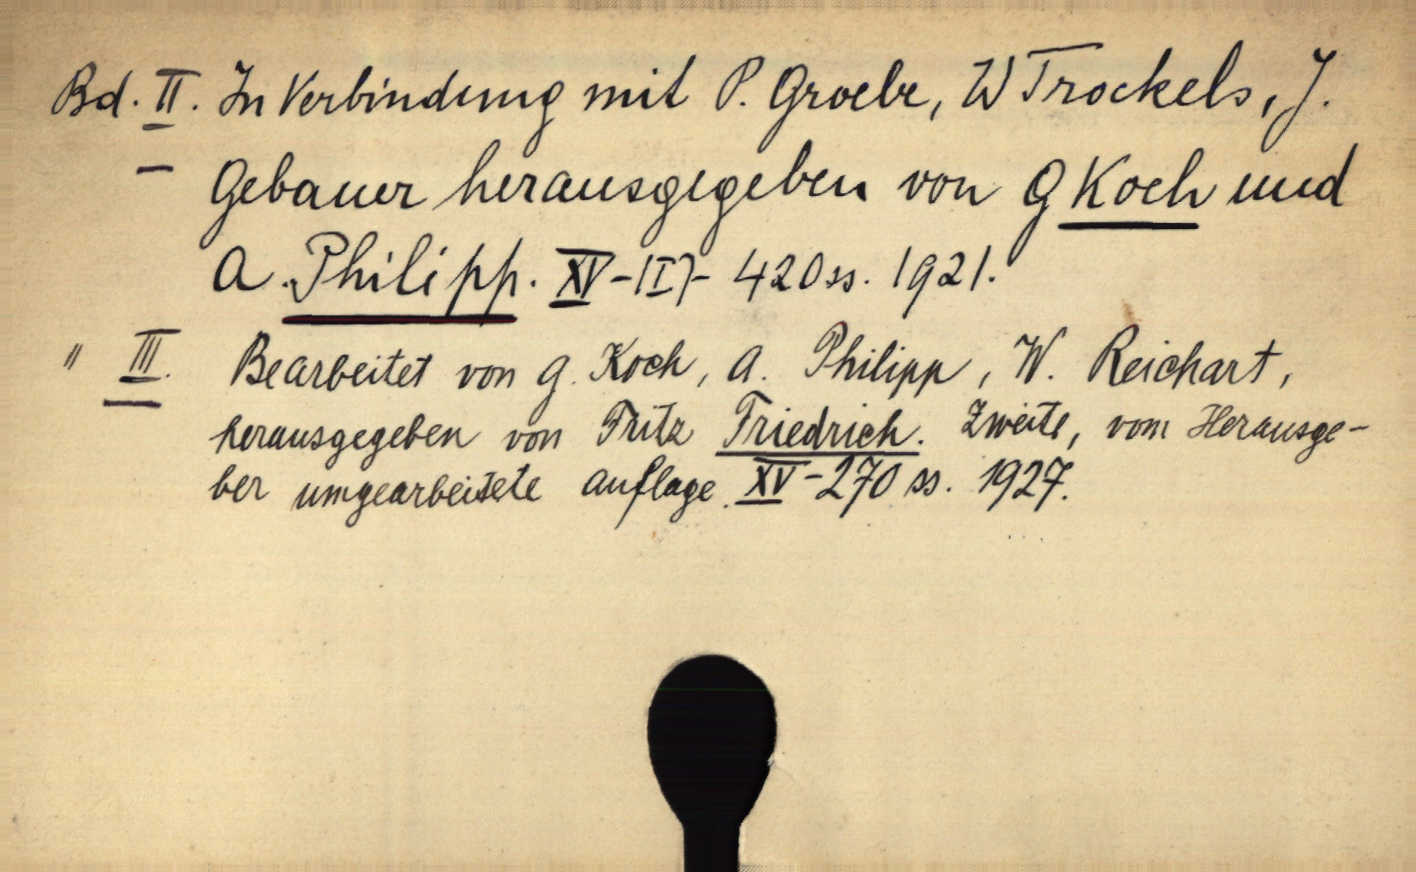 Bd. II. In Verbindung mit P. Groebe, W Trockels, J.
Gebauer herausgegeben von G Koch und
A. Philipp. XV-(I)- 420 ss. 1921.
" III. Bearbeitet von G. Koch, A. Philipp, W. Reichart,
herausgegeben von Fritz Friedrich. Zweite, vom Herausge-
ber umgearbeitete Auflage. XV-270 ss. 1927.